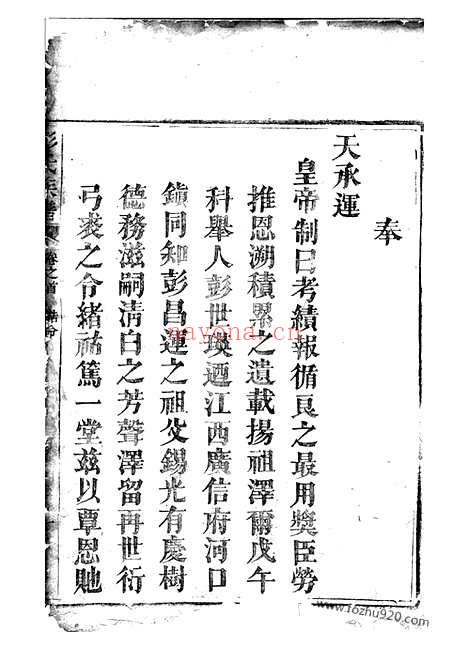 奉
天承運
皇帝制曰考績報循良之最用獎臣勞
推恩溯積累之遺載揚祖澤爾戊午
科舉人彭世瑛迺江西廣信府河口
鎮同知彭昌運之祖父錫光有慶樹
德務滋嗣清白之芳聲澤留再世衍
弓裘之令緒祐篤一堂茲以覃恩貤
彭氏族譜 卷之首 誥命
nayona.cn
www.fozhu920.com